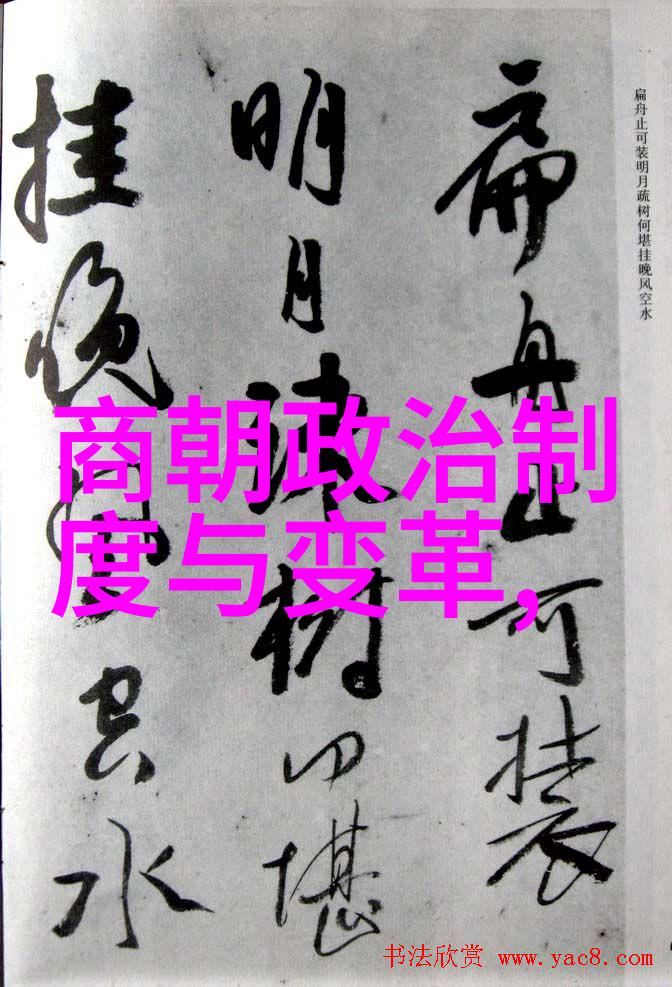 扁舟止可装
明月疏树何堪
挂晚风空水
扁舟止可装明月疏树何堪挂晚风空水
商朝政治制
度与变革,
书法欣赏 www.yac8.com